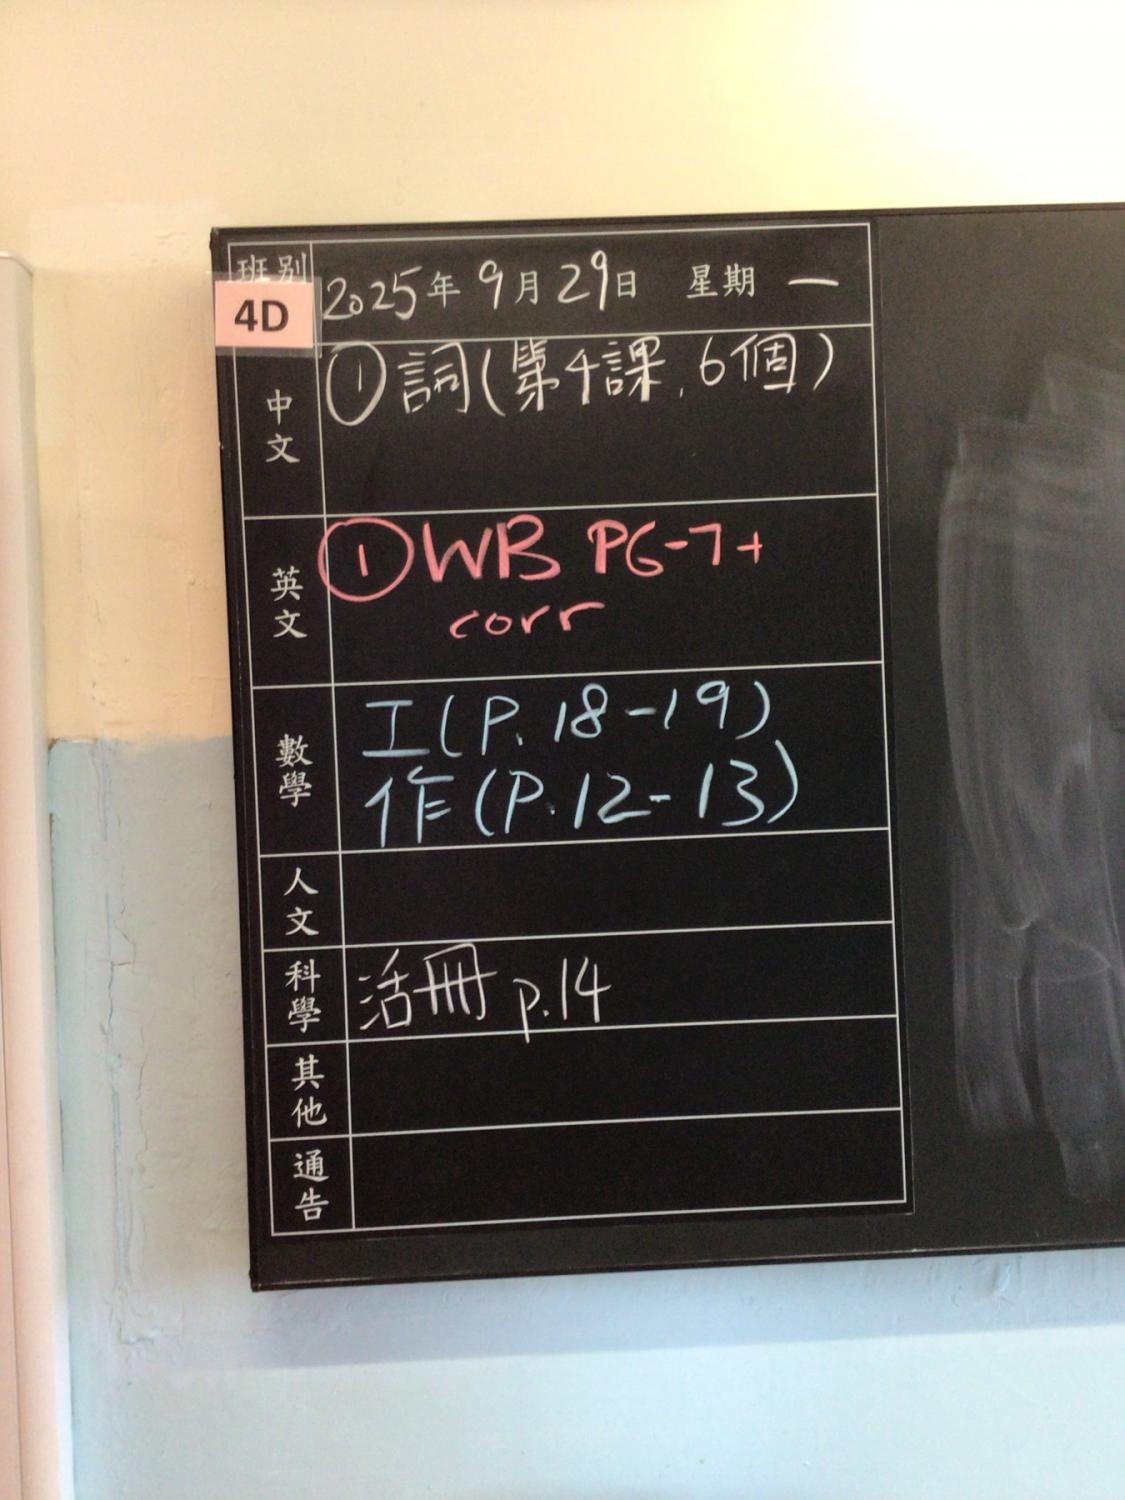 班別
4D
2025年9月29日 星期一
中文
①詞(第4課,6個)
英文
①WB P6-7+
corr
數學
工(P.18-19)
作(P.12-13)
人文
科學
活冊 p.14
其他
通告